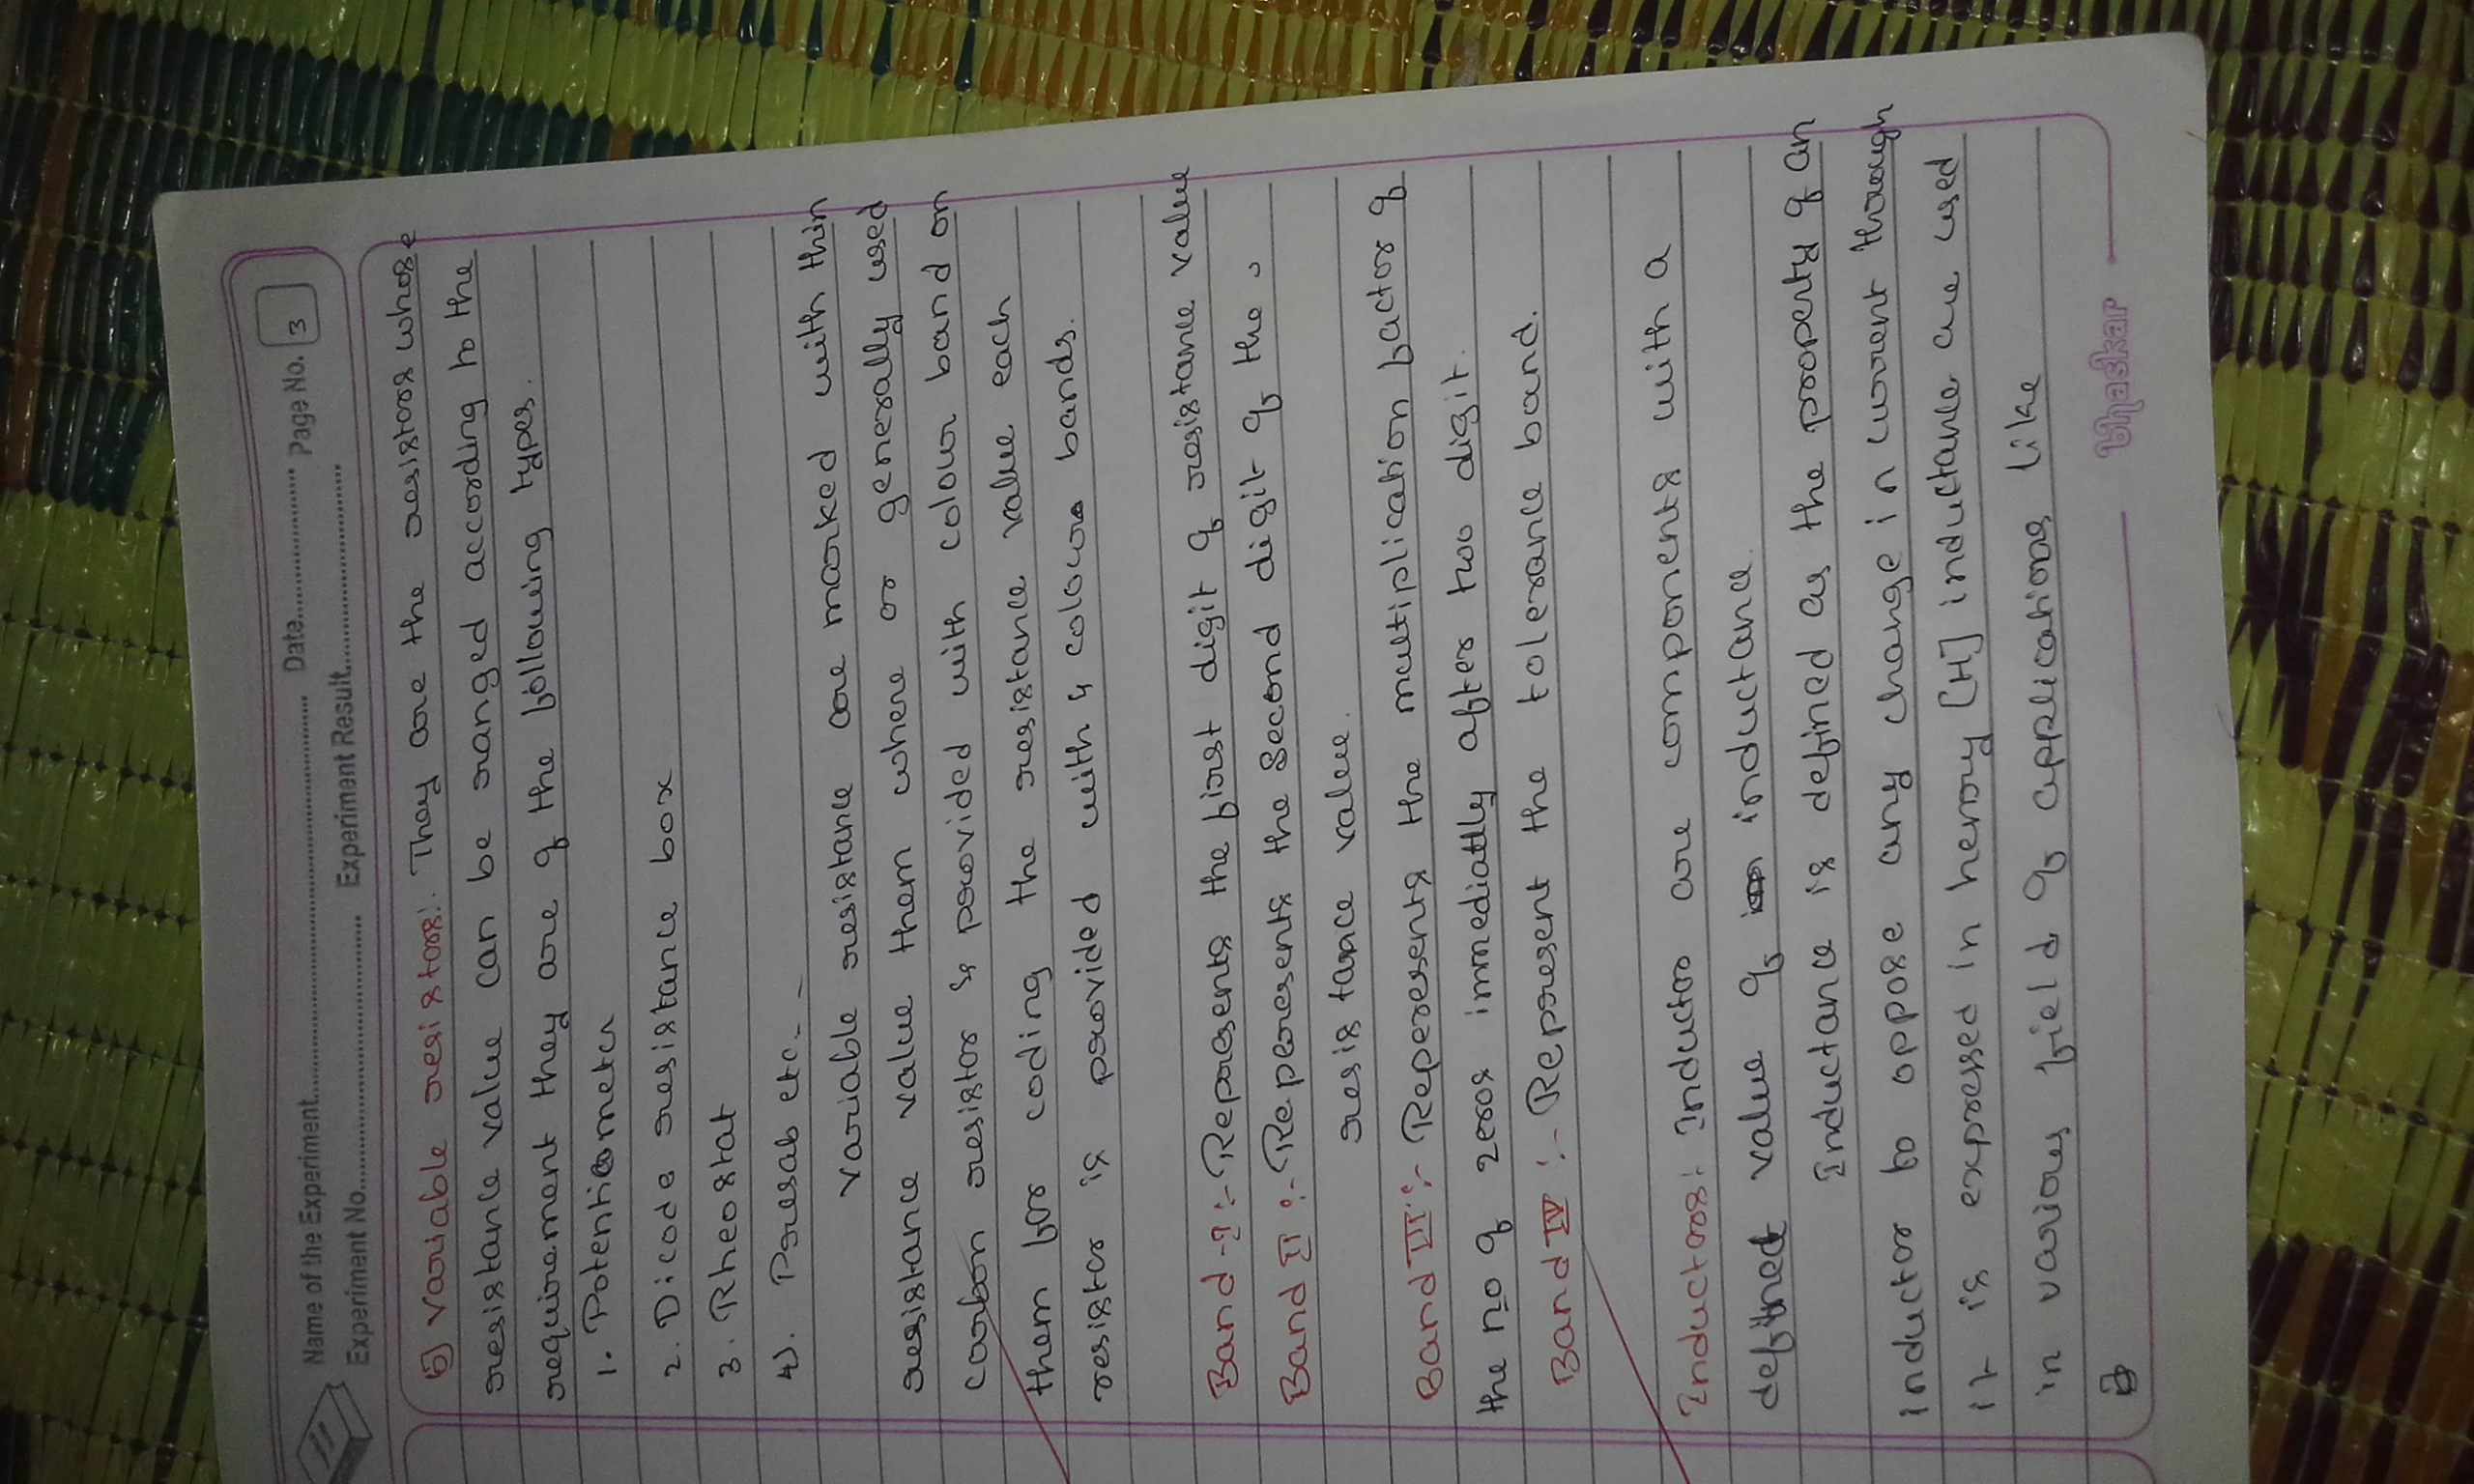 Name of the Experiment........ Date........ Page No. 3
Experiment No........ Experiment Result........
5) Variable resistors: They are the resistors whose
resistance value can be ranged according to the
requirement they are of the following types.
1. Potentiometer
2. Dicode resistance box
3. Rheostat
4). Presab etc.--
variable resistance are marked with thin
resistance value them where or generally used
carbon resistor & provided with colour band on
them for coding the resistance value each
resistor is provided with 4 colour bands.
Band-I :- Represents the first digit of resistance value
Band II :- Represents the second digit of the
resistance value.
Band III :- Reperesents the multiplication factor of
the no of zeros immediattly after two digit.
Band IV :- Represent the tolerance band.
Inductors: Inductor are components with a
defined value of inductance.
Inductance is defined as the property of an
inductor to oppose any change in current through
it is expressed in henry [H] inductance are used
in various field of applications like
bhaskar